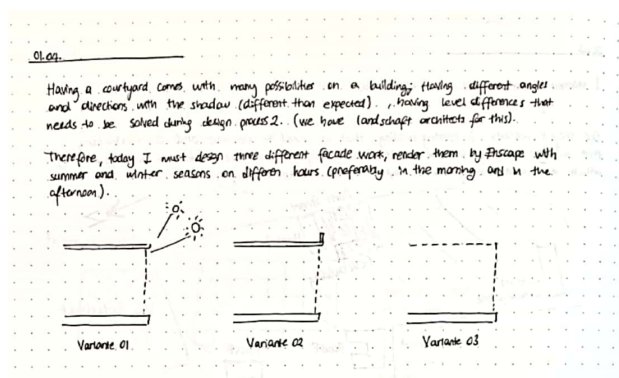 01.09.
Having a courtyard comes with many possibilities on a building; Having different angles
and directions with the shadow (different than expected)., having level differences that
needs to be solved during design process 2. (we have landschaft architects for this).
Therefore, today I must design three different facade work, render them by Enscape with
summer and winter seasons on differen hours (preferably in the morning and in the
afternoon).
Variante 01 Variante 02 Variante 03